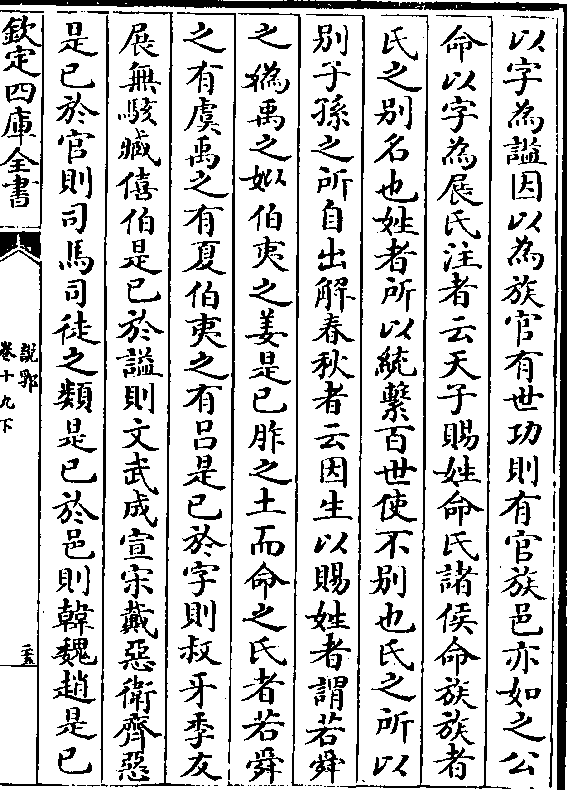 以字為諡因以為族官有世功則有官族邑亦如之公
命以字為展氏注者云天子賜姓命氏諸侯命族族者
氏之别名也姓者所以統繫百世使不别也氏之所以
别子孫之所自出解春秋者云因生以賜姓者謂若舜
之媯禹之姒伯夷之姜是已胙之土而命之氏者若舜
之有虞禹之有夏伯夷之有吕是已於字則叔牙季友
展無駭臧僖伯是已於諡則文武成宣宋戴惡衛齊惡
是已於官則司馬司徒之類是已於邑則韓魏趙是已
欽定四庫全書
說郛
卷十九下